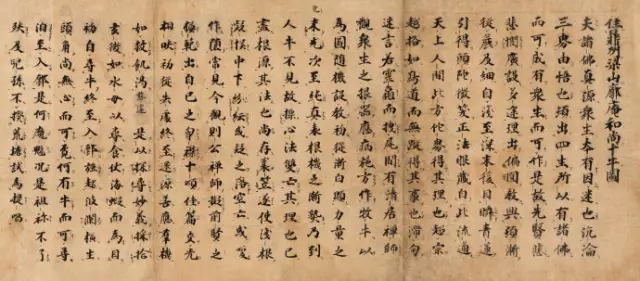 住鼎州梁山廓庵和尚十牛圖
夫諸佛真源衆生本有因迷也沉淪
三界由悟也頓出四生所以有諸佛
而可成有衆生而可作是故先賢
悲憫廣設多途理出偏圓教興頓漸
從麤及細自淺至深末後目瞬青蓮
引得頭陀微笑正法眼藏自此流通
天上人間此方佗界得其理也超宗
越格如鳥道而無蹤得其事也滯句
迷言若靈龜而曳尾間有清居禪師
觀衆生之根器應病施方作牧牛以
為圖隨機設教初從漸白顯力量之
未充次至純真表根機之漸熟乃到
人牛不見故標心法雙亡其理也已
盡根源其法也尚存莎笠遂使淺根
疑悞中下紛紜或疑之落空亡或喚
作墮常見今觀則公禪師擬前賢之
模範出自己之胸襟十頌佳篇交光
相映初從失處終至還源善應群機
如救飢渴慈遠是以探尋妙義採拾
玄微如水母以尋食依海蝦而為目
初自尋牛終至入鄽強起波瀾橫生
頭角尚無心而可覓何有牛而可尋
洎至入鄽是何魔魅况是祖祢不了
殃及兒孫不揆荒唐試為提唱